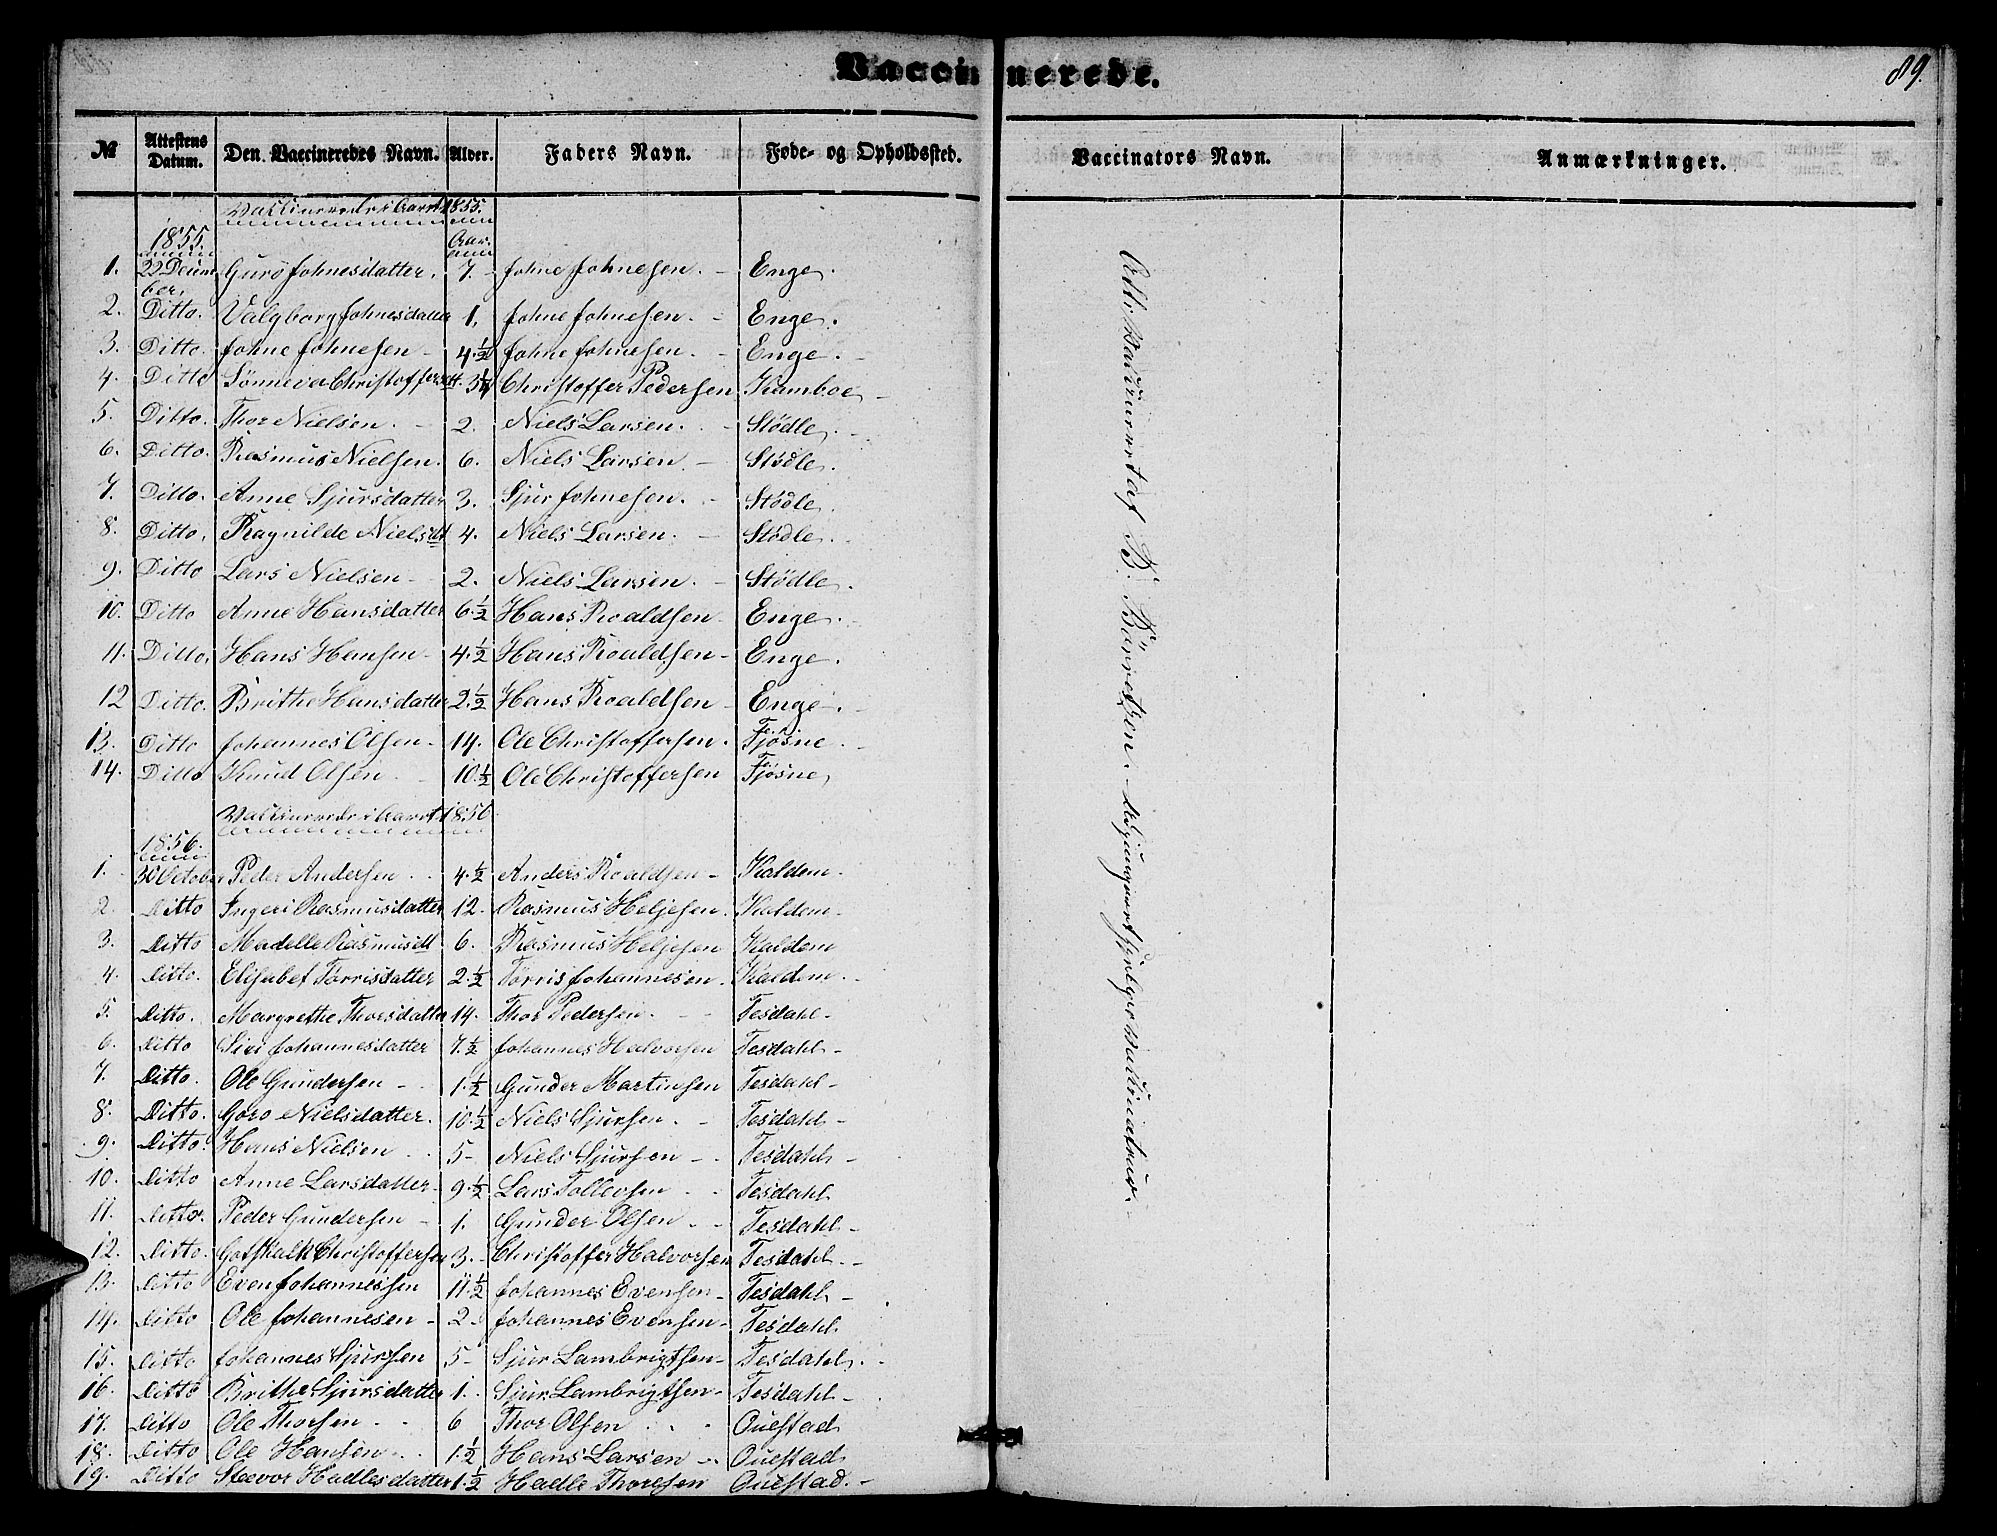 Vaccinerede.
89.
№ Attestens Datum. Den Vaccineredes Navn. Alder. Faders Navn. Føde- og Opholdssted. Vaccinators Navn. Anmærkninger.
Vaccinerede i Aaret 1855.
1855. Aar.
1. 22 Decem Gurø Johnesdatter. 7. Johne Johnesen. Enge.
ber.
2. Ditto. Valgborg Johnesdatter 1. Johne Johnesen. Enge.
3. Ditto. Johne Johnesen 4.½ Johne Johnesen. Enge.
4. Ditto Sønneva Christoffersdtt. 3¼ Christoffer Pedersen Kamboe
5. Ditto. Thor Nielsen. 2. Niels Larsen. Stödle.
6. Ditto. Rasmus Nielsen. 6. Niels Larsen Stödle.
7. Ditto. Anne Sjursdatter 3. Sjur Johnesen. Stödle.
8. Ditto. Ragnilde Nielsdt 4. Niels Larsen. Stödle.
9. Ditto Lars Nielsen 2. Niels Larsen Stödle.
10. Ditto Anne Hansdatter 6.½ Hans Roaldsen Enge.
11. Ditto. Hans Hansen 4.½ Hans Roaldsen Enge.
12 Ditto. Brithe Hansdatter 2.½ Hans Roaldsen Enge.
13. Ditto Johannes Olsen. 14. Ole Christoffersen. Fjösne.
14. Ditto Knud Olsen 10.½ Ole Christoffersen Fjösne
Vaccinerede i Aaret 1856
1856.
1. 30 October Peder Andersen 4.½ Anders Roaldsen Kaldem
2. Ditto Ingeri Rasmusdatter 12. Rasmus Heljesen. Kaldem
3. Ditto Madelle Rasmusdtt 6. Rasmus Heljesen Kaldem
4. Ditto. Elisabet Tørrisdatter 2.½ Tørris Johannesen. Kaldem.
5. Ditto. Margrethe Thorsdatter 14. Thor Pedersen. Tesdahl
6. Ditto Siri Johannesdatter 7.½ Johannes Halvorsen Tesdahl
7. Ditto. Ole Gundersen 1.½ Gunder Martinsen Tesdahl
8. Ditto. Goro Nielsdatter. 10.½ Niels Sjursen. Tesdahl
9. Ditto. Hans Nielsen 5 Niels Sjursen Tesdahl
10. Ditto Anne Larsdatter 9.½ Lars Tollevsen Tesdahl
11. Ditto. Peder Gundersen 1. Gunder Olsen Tesdahl
12. Ditto. Gotskalk Christoffersen 3. Christoffer Halvorsen Tesdahl.
13. Ditto Even Johannessen 11.½ Johannes Evensen Tesdahl
14. Ditto Ole Johannesen 2 Johannes Evensen Tesdahl
15. Ditto Johannes Sjursen 5 Sjur Lambrigtsen Tesdahl.
16. Ditto Brithe Sjursdatter 1. Sjur Lambrigtsen Tesdahl
17. Ditto Ole Thorsen 6 Thor Olsen Ouestad
18. Ditto Ole Hansen 1.½ Hans Larsen Ouestad
19. Ditto Steevor Hadlesdatter 1.½ Hadle Thoresen Ouestad.
Alle Vaccineret af B. Börretzen